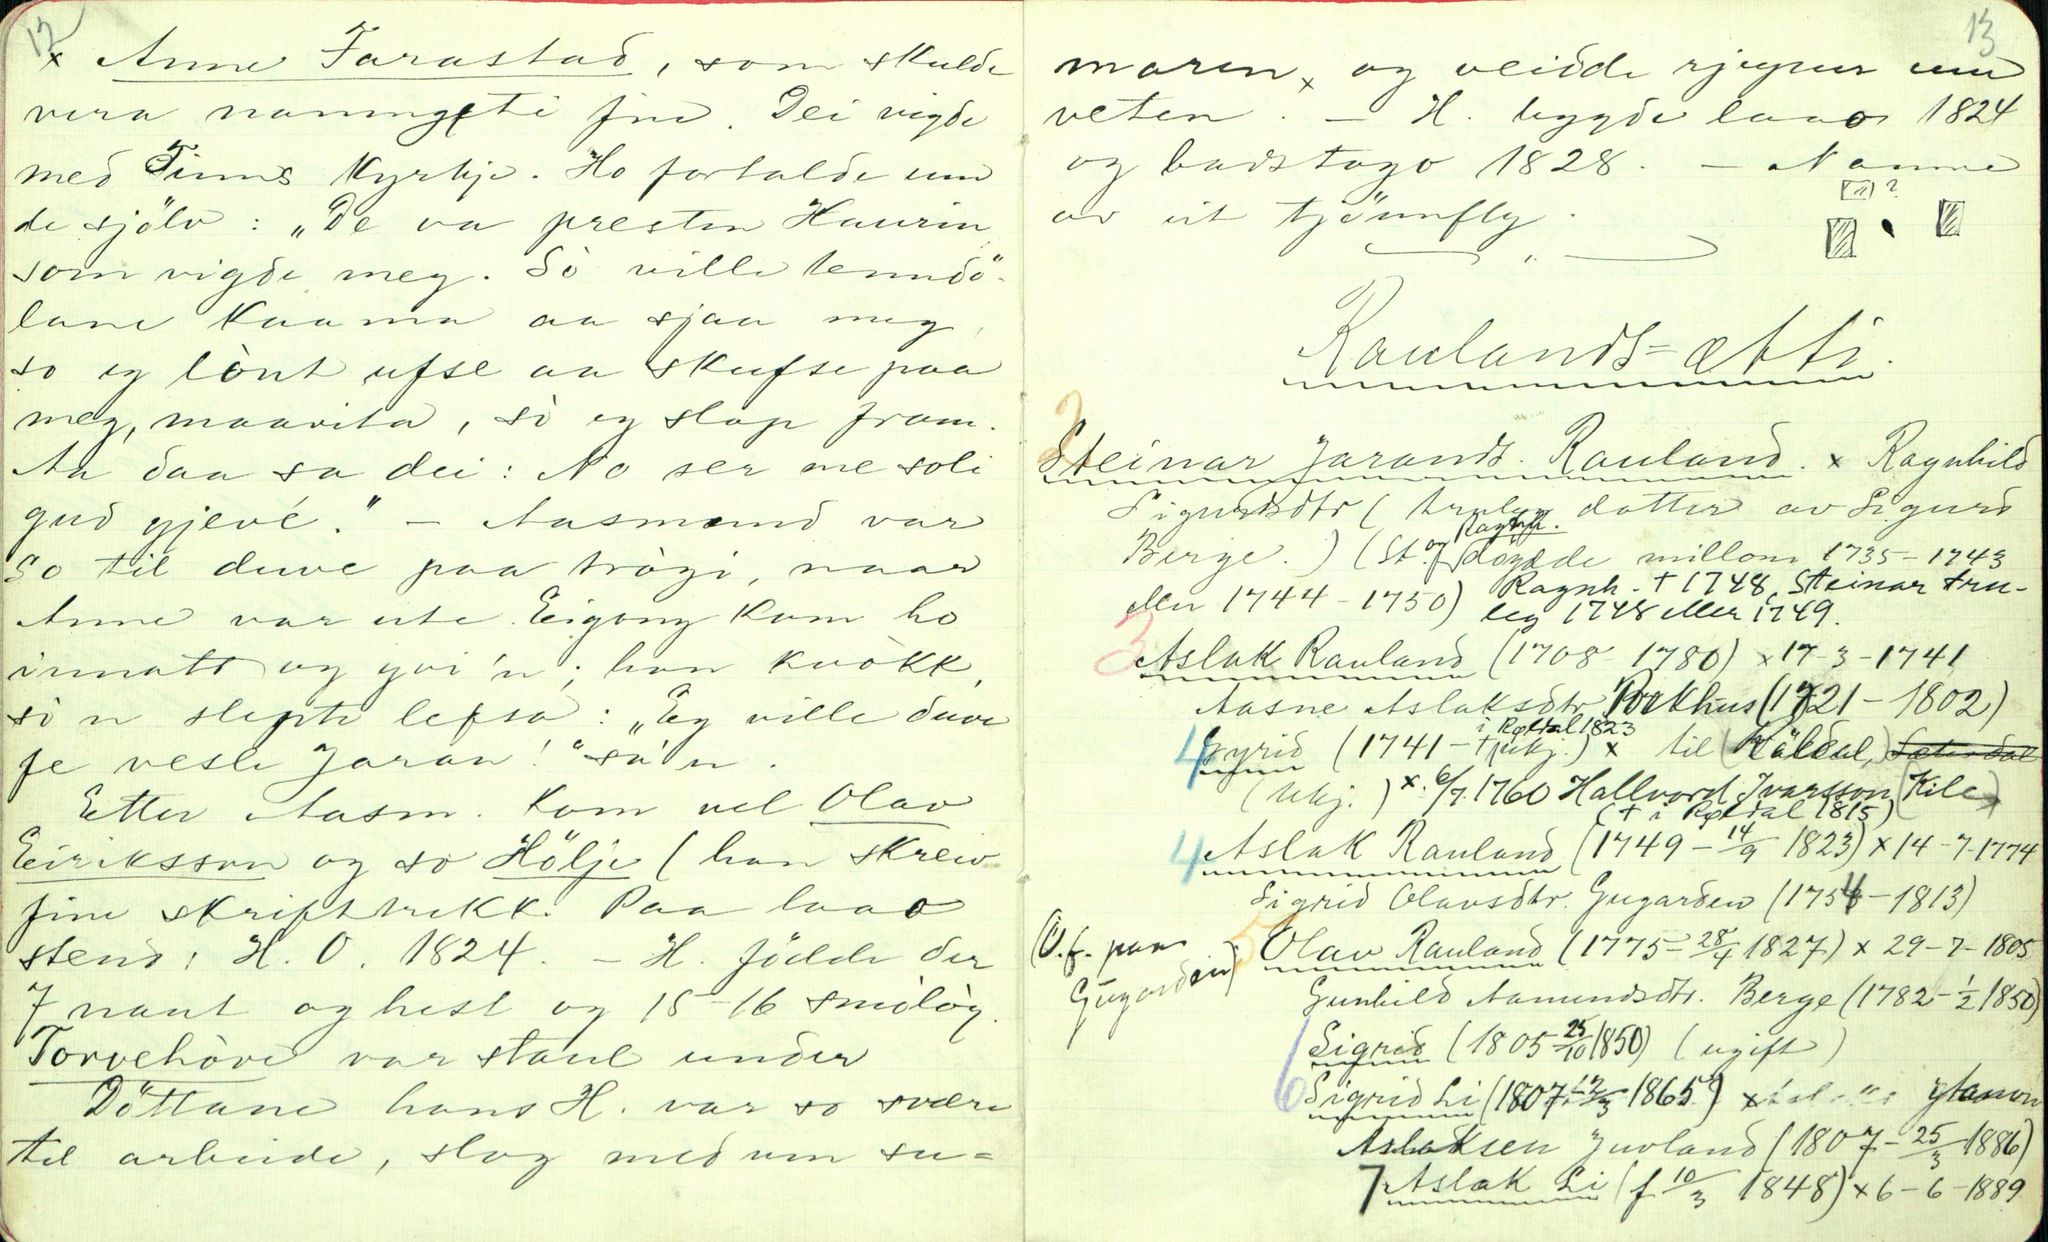 12
x Anne Farastad, som skulde
vera namngjeti fin. Dei vigde
med Tinns Kyrkje. Ho fortalde um
de sjölv: „De va presten Haurin
som vigde meg. Sò ville tenndö-
lane kaama aa sjaa meg,
so eg lònt ufse aa skufse paa
meg, maavita, sò eg slap fram.
Aa daa sa dei: No ser me soli
gud gjevé." – Aasmund var
so til duve paa tròzi, naar
Anne var ute. Eigong kom ho
innatt og gvi'n; han kvòkk,
sò 'n slepte lefsa: „Eg ville duve
fe vesle Jaran!" sa'n.
Etter Aasm. kom vel Olav
Eiriksson og so Hölje (han skreiv
fine skrifttrekk. Paa laao
stend: H. O. 1824. – H. födde der
7 naut og hest og 15–16 smòlòg.
Torvehòvd var staul under
Döttane hans H. var so svære
til arbeide, slog med um su=
13
maren, x og veidde rjupur um
veten. – H. bygde laao 1824
og badstogo 1828. – Namne
av eit tjönnfly.
?
Raulands=ætti.
2
Steinar Jarands. Rauland. x Ragnhild
Sigurdsdtr (truleg dotter av Sigurd
Berge.) (St. og Ragnh. döydde millom 1735–1743
eller 1744–1750) Ragnh. † 1748, Steinar tru-
leg 1748 eller 1749.
3 Aslak Rauland (1708–1780) x 17-3-1741
Aasne Aslaksdtr. Porkhus (1721–1802)
i Röldal 1823
4 Gyrid (1741– † ukj.) x til (Röldal, Sætesdal
(ukj.) x. 6/7. 1760 Hallvord Ivarsson (Kile)
(† i Röldal 1815)
4 Aslak Rauland (1749 – 14/9 1823) x 14-7-1774
Sigrid Olavsdtr. Gugarden (1754–1813)
(O. f. paa Gugarden) 5 Olav Rauland (1775 – 28/4 1827) x 29-7-1805
Gunhild Aamundsdtr. Berge (1782 – 1/2 1850)
6 Sigrid (1805 25/10 1850) (ugift)
6 Sigrid Li (1807 – 12/3 1865) x
Aslaksen Juvland (1807 – 25/3 1886)
7 Aslak Li (f. 10/3 1848) x 6-6-1889